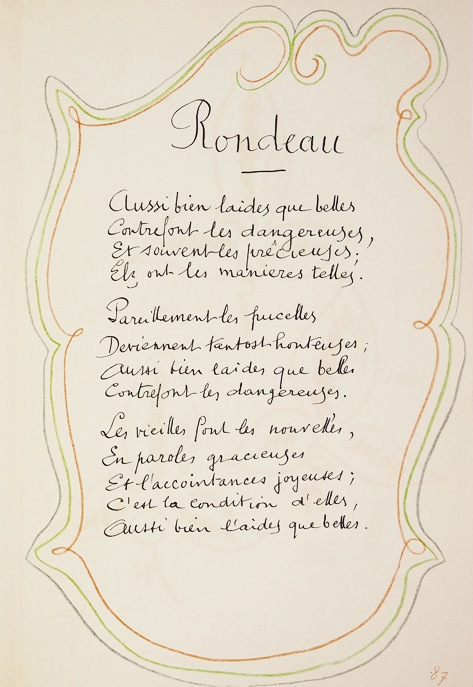 Rondeau
Aussi bien laides que belles
Contrefont les dangereuses,
Et souvent les précieuses;
Elz ont les manieres telles.
Pareillement les pucelles
Deviennent tantost honteuses;
Aussi bien laides que belles
Contrefont les dangereuses.
Les vieilles font les nouvelles,
En paroles gracieuses
Et l'accointances joyeuses;
C'est la condition d'elles,
Aussi bien l'aides que belles.
87